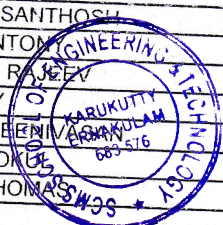 SANTHOSH
NTON
RAJEEV
EENIVASAN
OKU
HOMAS
SCMS SCHOOL OF ENGINEERING & TECHNOLOGY
KARUKUTTY
ERNAKULAM
683 576